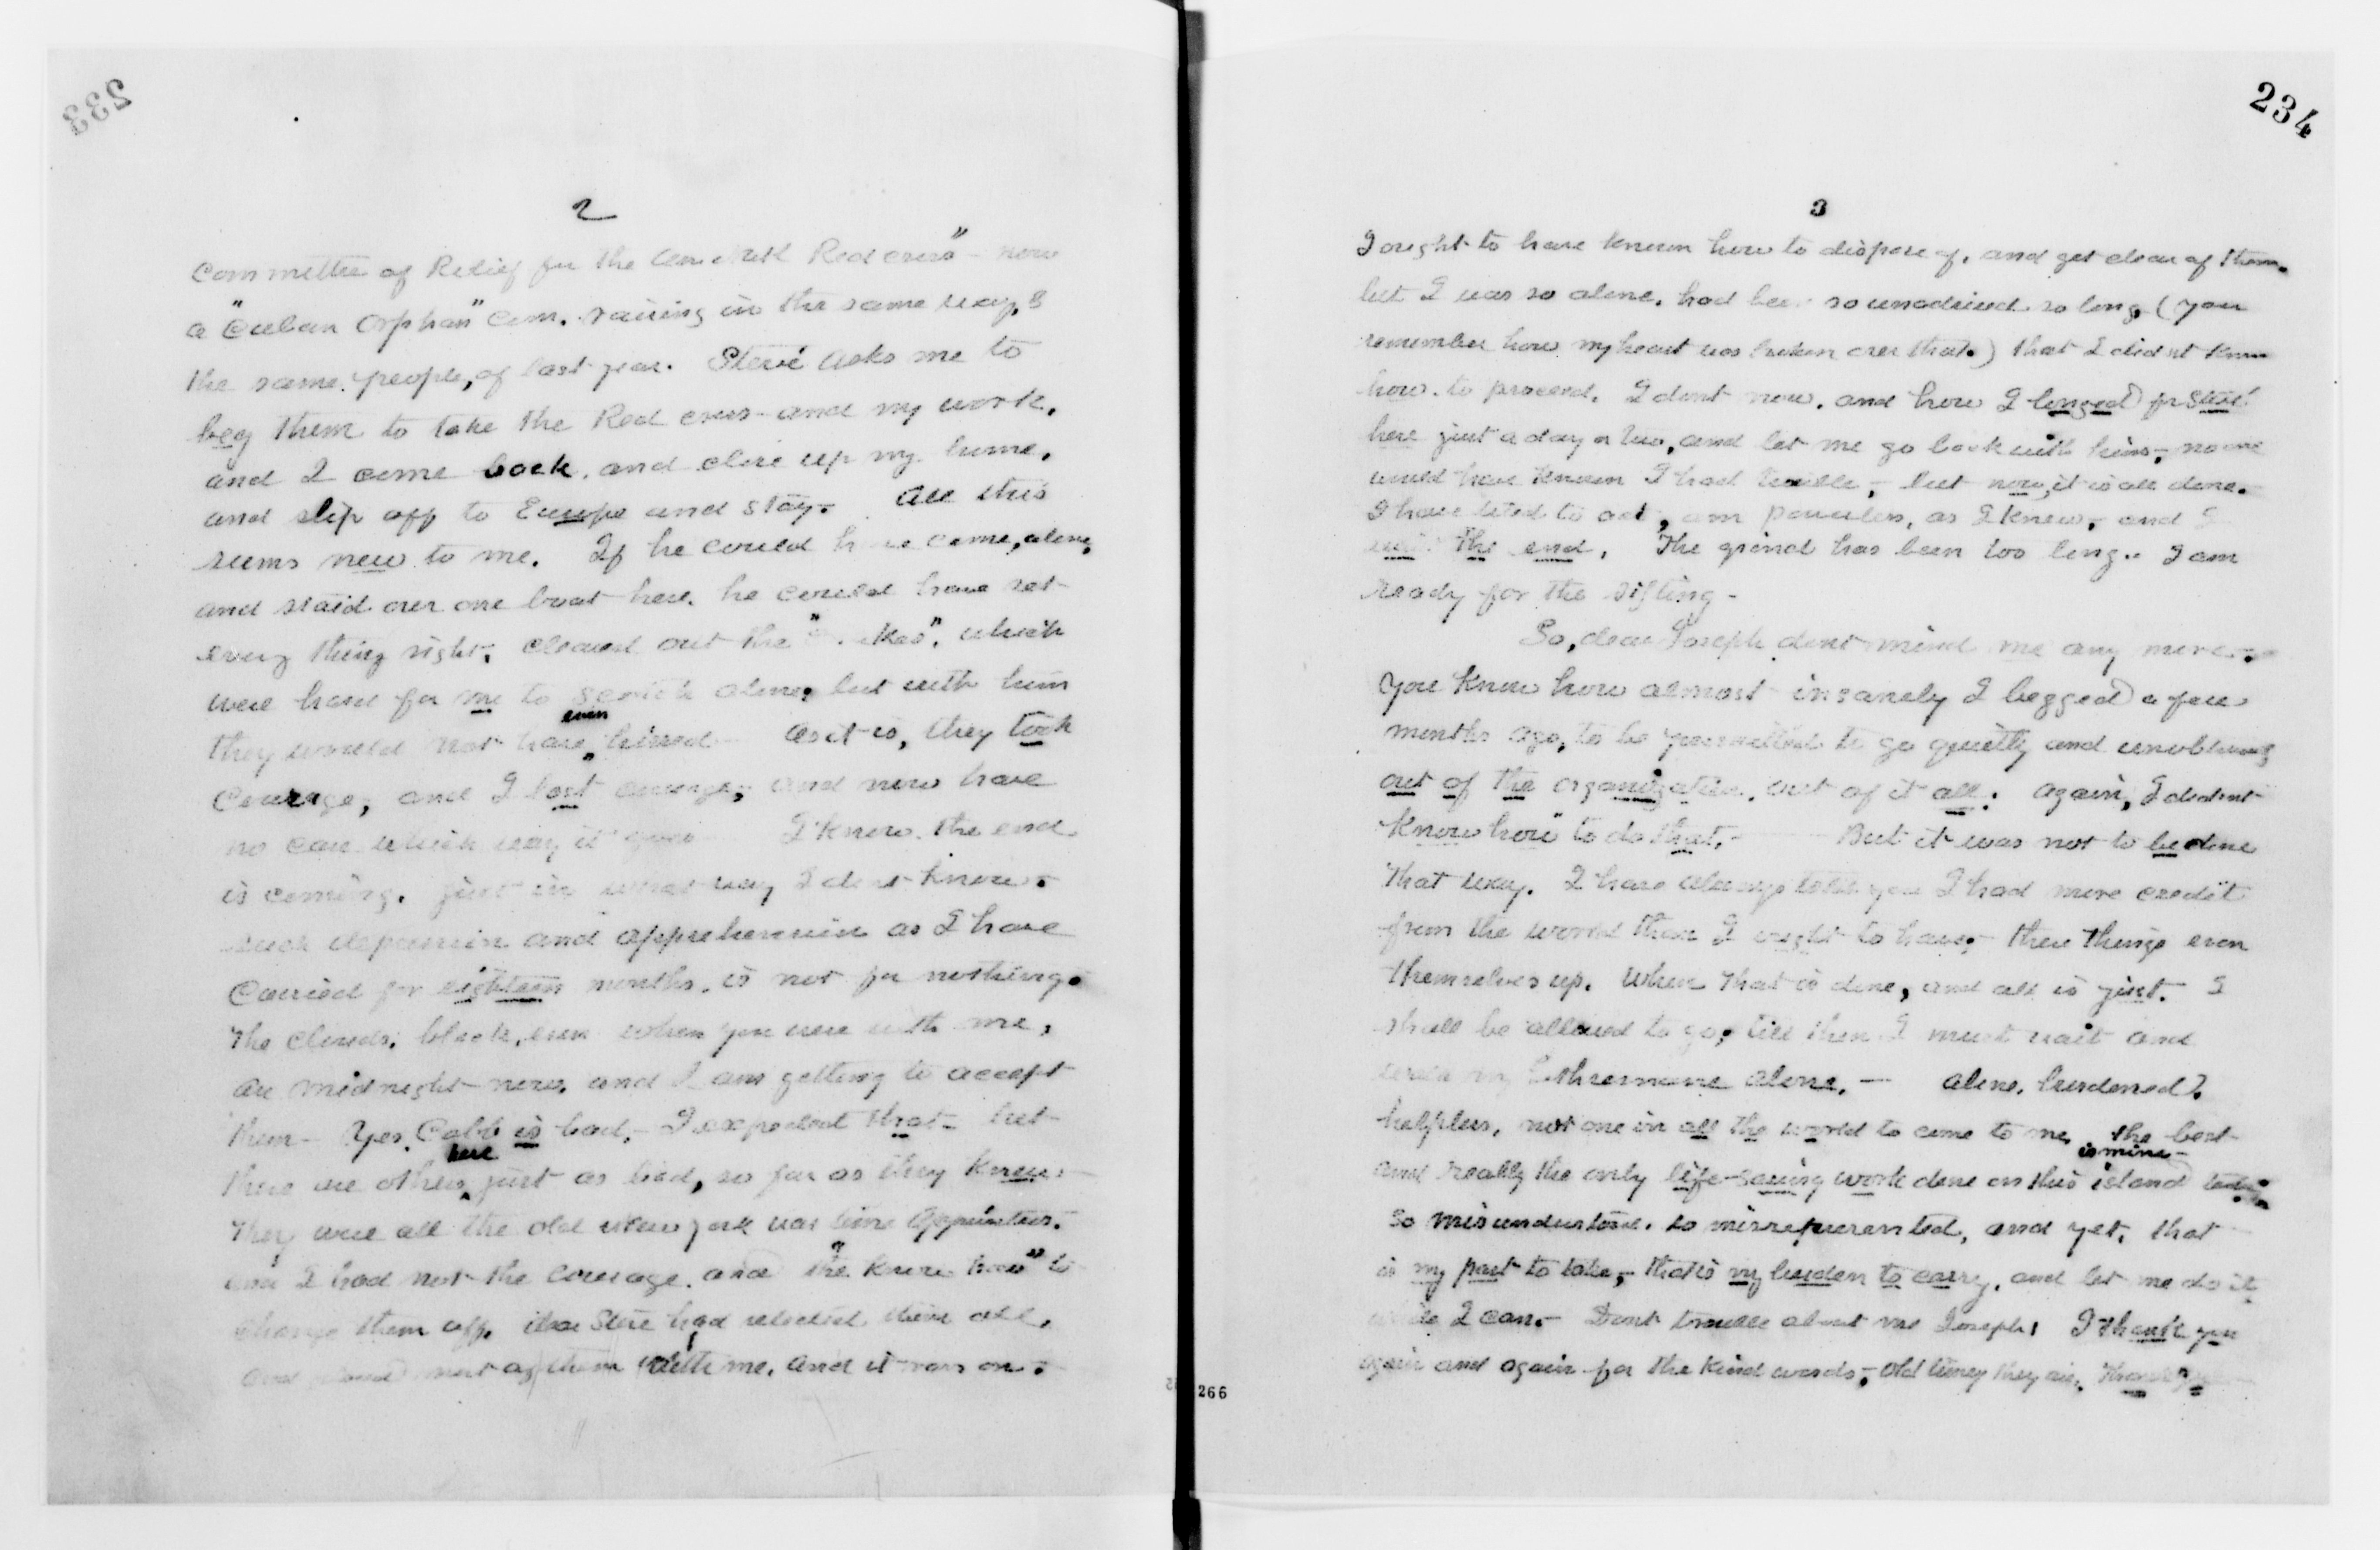 233
2
Committee of Relief for the Am. Natl Red Cross" - now
a "Cuban Orphan" Com. raising in the same way, &
the same people, of last year. Steve asks me to
beg them to take the Red Cross - and my work,
and I come back, and close up my home,
and slip off to Europe and stay. All this
seems new to me. If he could have come, alone,
and staid over one boat here, he could have set
every thing right, cleaned out the " which
were hard for me to scotch alone, but with him
they would not have even hissed - As it is, they took
Courage, and I lost courage, and now have
no care which way it goes I know the end
is coming, just in what way I dont know.
such depression and apprehension as I have
Carried for eighteen months, is not for nothing.
The clouds, black, even when you were with me,
are midnight now, and I am getting to accept
them - Yes, Cobb is bad, - I expected that - but
there are others here just as bad, so far as they knew.
They were all the old New York war time appointees.
and I had not the courage, and the "know how" to
change them off, then Steve had selected them all,
and most of them with me, and it ran on.
266
234
3
I ought to have known how to dispose of, and get clear of them,
but I was so alone, had been so unadvised so long, (you
remember how my heart was broken over that.) that I didnt know
how to proceed. I dont now, and how I longed for Steve
here just a day or two, and let me go back with him, - no one
would have known I had trouble, - but now, it is all done.
I have tried to act, am powerless, as I knew, and I
wait the end. The grind has been too long. I am
ready for the sifting -
So, dear Joseph dont mind me any more. -
You know how almost insanely I begged a few
months ago, to be permitted to go quietly and unobtrusively
out of the organization, out of it all: again, I didnt
"Know how" to do that. - But it was not to be done
that way. I have always told you I had more credit
from the world than I ought to have, - these things even
themselves up. When that is done, and all is just. I
shall be allowed to go, till then I must wait and
my Gethsemane alone. - alone, burdened,
helpless, not one in all the world to come to me, the best
and really the only life-saving work done on this island is mine -
so misunderstood, so misrepresented, and yet, that
is my part to take, - that is my burden to carry, and let me do it
while I can. - Dont trouble about me Joseph, I thank you
again and again for the kind words, - old timey they are,